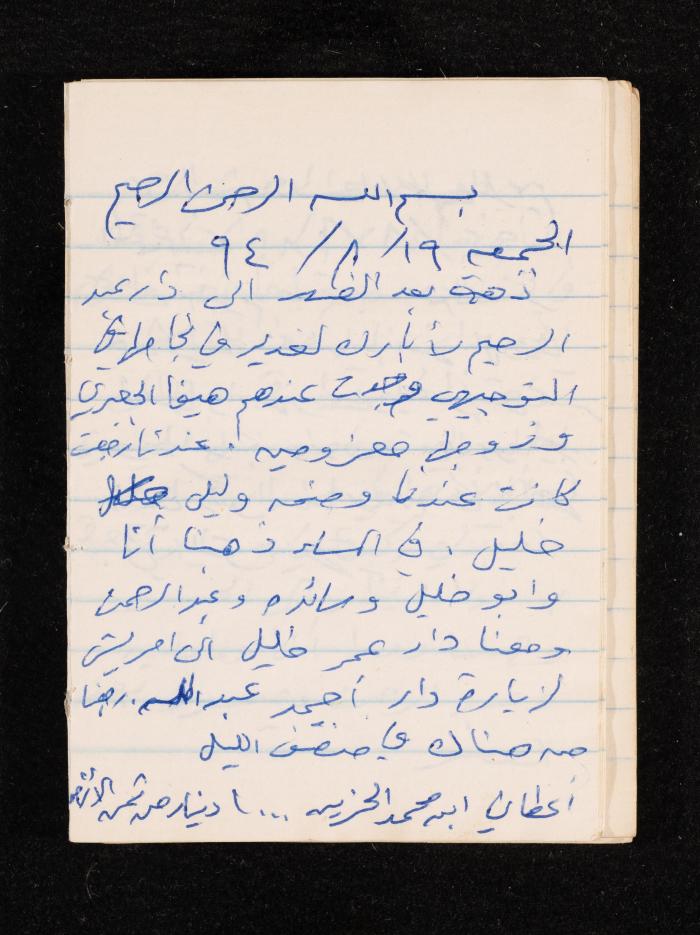 بسم الله الرحمن الرحيم
الجمعه ١٩/ ٨/ ٩٤
ذهبت بعد الظهر الى دار عبد
الرحيم لأبارك لغدير في نجاحها في
التوجيهي وجدت عندهم هيفا الجعبري
وزوجها معزومين. عندما رجعت
كانت عندنا وصفه وليلى
خليل. في المساء ذهبنا أنا
وابو خليل وسائده وعبد الرحمن
ومعنا دار عمر خليل الى امريش
لزيارة دار أحمد عبد الله. رجعنا
من هناك في منتصف الليل
أعطاني ابن محمد الحزين ١٠٠٠ دينار من ثمن الأرض